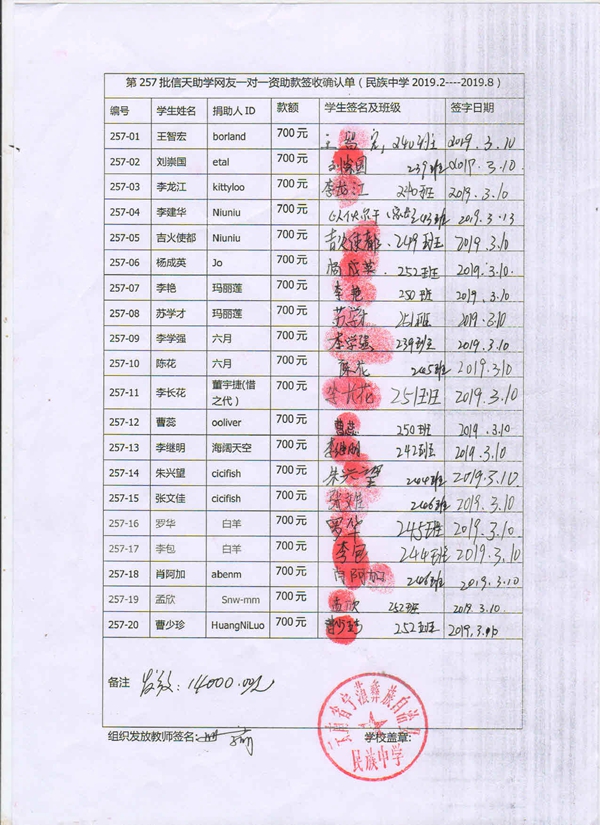 第 257 批信天助学网友一对一资助款签收确认单（民族中学 2019.2----2019.8）
编号 学生姓名 捐助人 ID 款额 学生签名及班级 签字日期
257-01 王智宏 borland 700 元 240班 2019.3.10
257-02 刘崇国 etal 700 元 刘崇国 239班 2019.3.10
257-03 李龙江 kittyloo 700 元 李龙江 240班 2019.3.10
257-04 李建华 Niuniu 700 元 243班 2019.3.13
257-05 吉火使都 Niuniu 700 元 吉火使都 249班 2019.3.10
257-06 杨成英 Jo 700 元 杨成英 252班 2019.3.10.
257-07 李艳 玛丽莲 700 元 李艳 250班 2019.3.10
257-08 苏学才 玛丽莲 700 元 苏学才 251班 2019.3.10
257-09 李学强 六月 700 元 李学强 239班 2019.3.10
257-10 陈花 六月 700 元 陈花 245班 2019.3.10
257-11 李长花 董宇捷(惜之代） 700 元 李长花 251班 2019.3.10
257-12 曹蕊 ooliver 700 元 曹蕊 250班 2019.3.10
257-13 李继明 海阔天空 700 元 李继明 242班 2019.3.10
257-14 朱兴望 cicifish 700 元 朱兴望 244班 2019.3.10
257-15 张文佳 cicifish 700 元 张文佳 246班 2019.3.10
257-16 罗华 白羊 700 元 罗华 245班 2019.3.10
257-17 李包 白羊 700 元 李包 244班 2019.3.10
257-18 肖阿加 abenm 700 元 肖阿加 246班 2019.3.10
257-19 孟欣 Snw-mm 700 元 孟欣 252班 2019.3.10
257-20 曹少珍 HuangNiLuo 700 元 曹少珍 252班 2019.3.10
备注 发放：14000.00元
组织发放教师签名: 学校盖章:
云南省宁蒗彝族自治县
民族中学